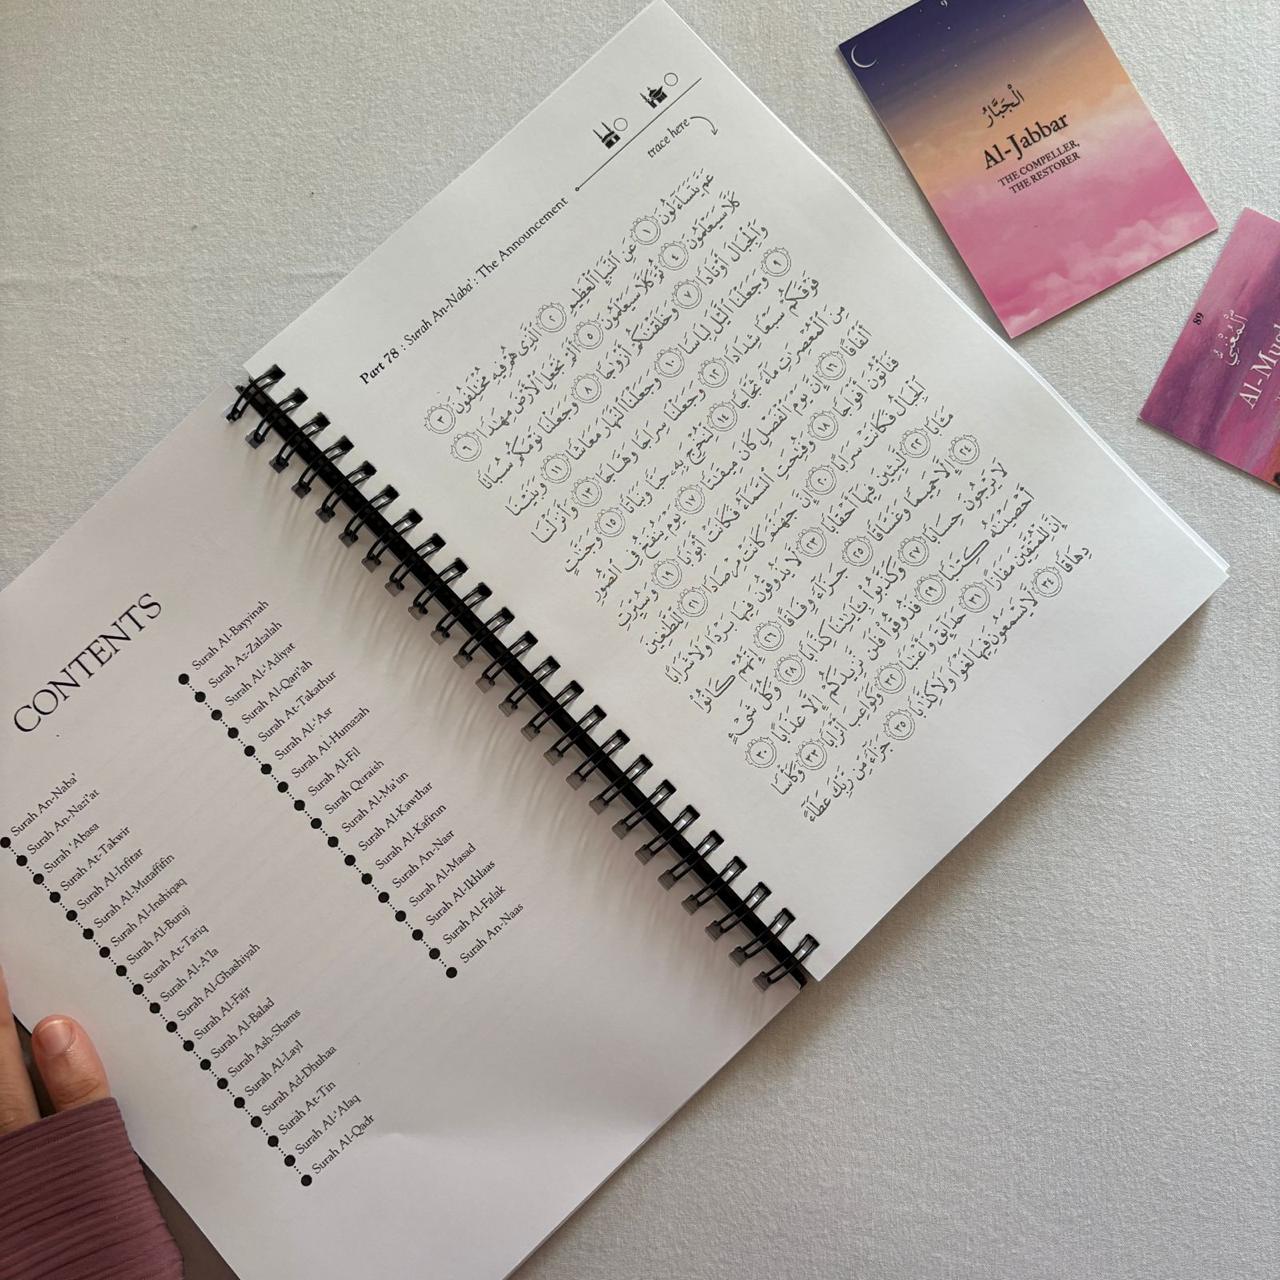 CONTENTS
Surah An-Naba'
Surah An-Nazi'at
Surah 'Abasa
Surah At-Takwir
Surah Al-Infitar
Surah Al-Mutaffifin
Surah Al-Inshiqaq
Surah Al-Buruj
Surah At-Tariq
Surah Al-A'la
Surah Al-Ghashiyah
Surah Al-Fajr
Surah Al-Balad
Surah Ash-Shams
Surah Al-Layl
Surah Ad-Dhuhaa
Surah At-Tin
Surah Al-'Alaq
Surah Al-Qadr
Surah Al-Bayyinah
Surah Az-Zalzalah
Surah Al-'Adiyat
Surah Al-Qari'ah
Surah At-Takathur
Surah Al-'Asr
Surah Al-Humazah
Surah Al-Fil
Surah Quraish
Surah Al-Ma'un
Surah Al-Kawthar
Surah Al-Kafirun
Surah An-Nasr
Surah Al-Masad
Surah Al-Ikhlaas
Surah Al-Falak
Surah An-Naas
Part 78 : Surah An-Naba' : The Announcement
trace here
عَمَّ يَتَسَآءَلُونَ ١ عَنِ ٱلنَّبَإِ ٱلْعَظِيمِ ٢ ٱلَّذِى هُمْ فِيهِ مُخْتَلِفُونَ ٣
كَلَّا سَيَعْلَمُونَ ٤ ثُمَّ كَلَّا سَيَعْلَمُونَ ٥ أَلَمْ نَجْعَلِ ٱلْأَرْضَ مِهَـٰدًا ٦
وَٱلْجِبَالَ أَوْتَادًا ٧ وَخَلَقْنَـٰكُمْ أَزْوَٰجًا ٨ وَجَعَلْنَا نَوْمَكُمْ سُبَاتًا
٩ وَجَعَلْنَا ٱلَّيْلَ لِبَاسًا ١٠ وَجَعَلْنَا ٱلنَّهَارَ مَعَاشًا ١١ وَبَنَيْنَا
فَوْقَكُمْ سَبْعًا شِدَادًا ١٢ وَجَعَلْنَا سِرَاجًا وَهَّاجًا ١٣ وَأَنزَلْنَا
مِنَ ٱلْمُعْصِرَٰتِ مَآءً ثَجَّاجًا ١٤ لِّنُخْرِجَ بِهِۦ حَبًّا وَنَبَاتًا ١٥ وَجَنَّـٰتٍ
أَلْفَافًا ١٦ إِنَّ يَوْمَ ٱلْفَصْلِ كَانَ مِيقَـٰتًا ١٧ يَوْمَ يُنفَخُ فِى ٱلصُّورِ
فَتَأْتُونَ أَفْوَاجًا ١٨ وَفُتِحَتِ ٱلسَّمَآءُ فَكَانَتْ أَبْوَٰبًا ١٩ وَسُيِّرَتِ
ٱلْجِبَالُ فَكَانَتْ سَرَابًا ٢٠ إِنَّ جَهَنَّمَ كَانَتْ مِرْصَادًا ٢١ لِّلطَّـٰغِينَ
مَـَٔابًا ٢٢ لَّـٰبِثِينَ فِيهَآ أَحْقَابًا ٢٣ لَّا يَذُوقُونَ فِيهَا بَرْدًا وَلَا شَرَابًا
٢٤ إِلَّا حَمِيمًا وَغَسَّاقًا ٢٥ جَزَآءً وِفَاقًا ٢٦ إِنَّهُمْ كَانُوا۟
لَا يَرْجُونَ حِسَابًا ٢٧ وَكَذَّبُوا۟ بِـَٔايَـٰتِنَا كِذَّابًا ٢٨ وَكُلَّ شَىْءٍ
أَحْصَيْنَـٰهُ كِتَـٰبًا ٢٩ فَذُوقُوا۟ فَلَن نَّزِيدَكُمْ إِلَّا عَذَابًا ٣٠
إِنَّ لِلْمُتَّقِينَ مَفَازًا ٣١ حَدَآئِقَ وَأَعْنَـٰبًا ٣٢ وَكَوَاعِبَ أَتْرَابًا ٣٣ وَكَأْسًا
دِهَاقًا ٣٤ لَّا يَسْمَعُونَ فِيهَا لَغْوًا وَلَا كِذَّٰبًا ٣٥ جَزَآءً مِّن رَّبِّكَ عَطَآءً
9
الْجَبَّارُ
Al-Jabbar
THE COMPELLER,
THE RESTORER
89
الْمُغْنِيُ